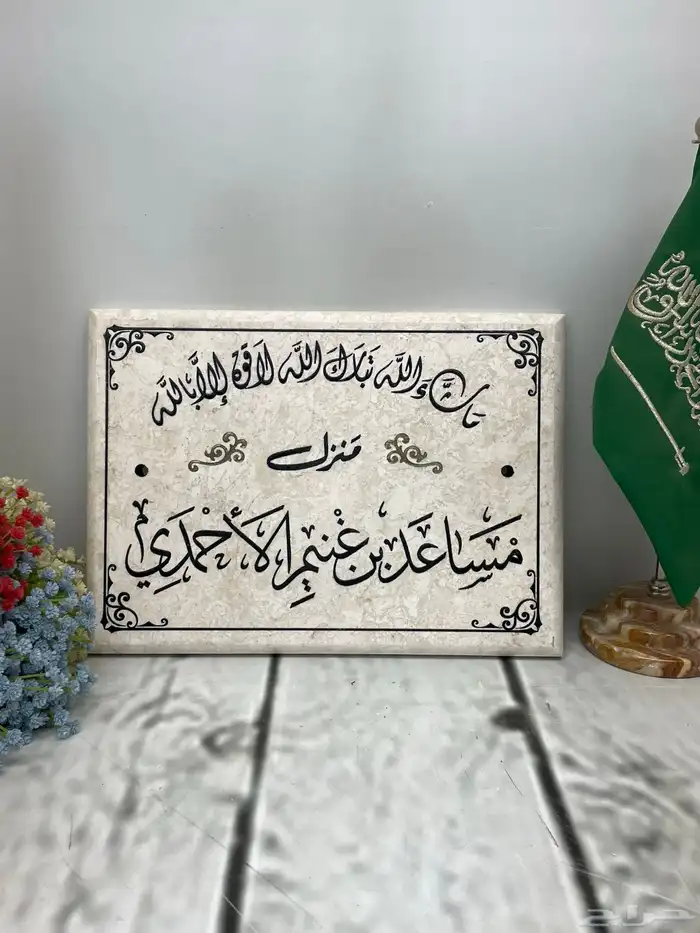 مَاشَاءَ اللَّه تَبَارَكَ اللَّه لَا قُوَّة إِلَّا بِاللَّه
مَنزل
مسَاعَد بن غنيم الأَحْمَدِي
حراج